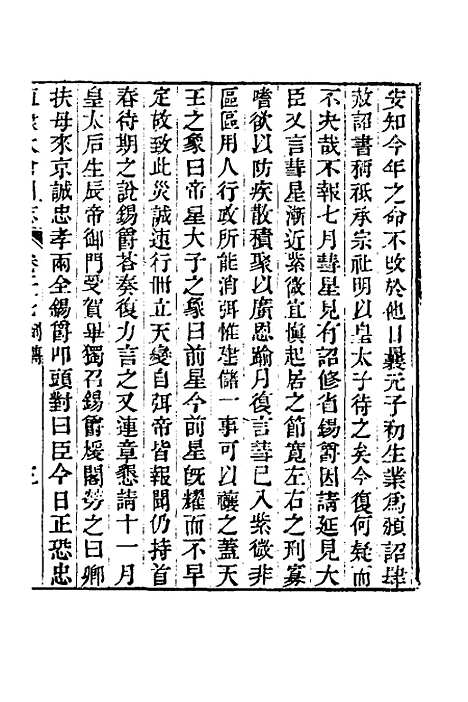 安知今年之命不改於他日曩元子初生業爲頒詔肆
赦詔書稱祗承宗社明以皇太子待之矣今復何疑而
不決哉不報七月彗星見有詔修省錫爵因請延見大
臣又言彗星漸近紫微宜愼起居之節寬左右之刑寡
嗜欲以防疾散積聚以廣恩踰月復言彗已入紫微非
區區用人行政所能消弭惟建儲一事可以禳之蓋天
王之象曰帝星太子之象曰前星今前星旣耀而不早
定故致此災誠速行冊立天變自弭帝皆報聞仍持首
春待期之說錫爵荅奏復力言之又連章懇請十一月
皇太后生辰帝御門受賀畢獨召錫爵煖閣勞之曰卿
扶母來京誠忠孝兩全錫爵叩頭對曰臣今日正恐忠